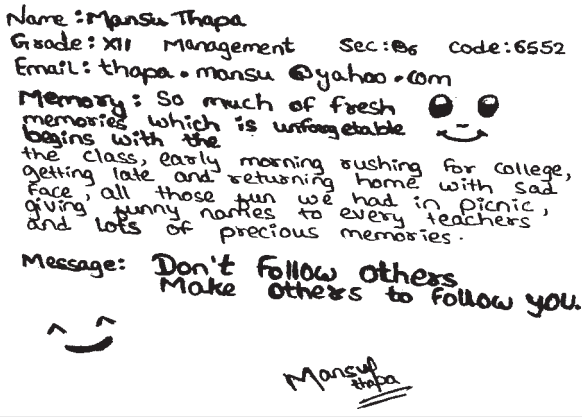 Name: Mansu Thapa
Grade: XII Management Sec: B6 Code: 6552
Email: thapa.mansu@yahoo.com
Memory: So much of fresh
memories which is unforgetable
begins with the
the class, early morning rushing for college,
getting late and returning home with sad
face, all those fun we had in picnic,
giving funny names to every teachers
and lots of precious memories.
Message: Don't follow others
Make others to follow you.
Mansu
thapa